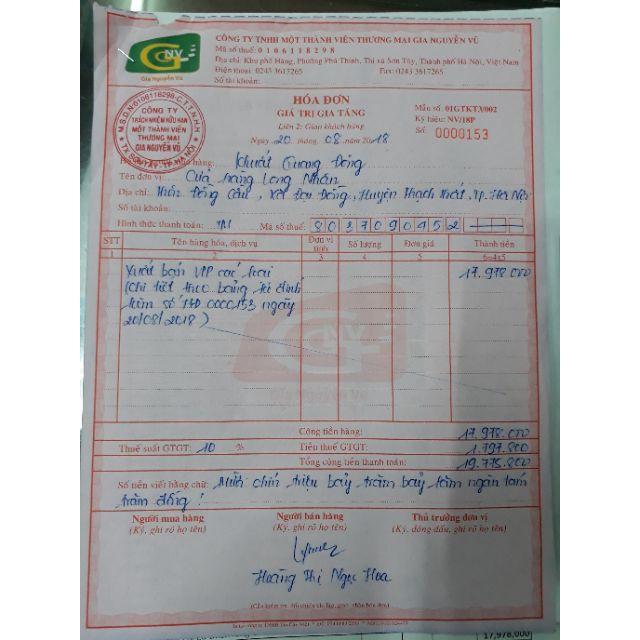 CÔNG TY TNHH MỘT THÀNH VIÊN THƯƠNG MẠI GIA NGUYỄN VŨ
Mã số thuế: 0 1 0 6 1 1 8 2 9 8
Địa chỉ: Khu phố Hàng, Phường Phú Thịnh, Thị xã Sơn Tây, Thành phố Hà Nội, Việt Nam
Điện thoại: 0243 3617265 Fax: 0243 3617265
Số tài khoản:
GNV
Gia Nguyễn Vũ
HÓA ĐƠN
GIÁ TRỊ GIA TĂNG
Liên 2: Giao khách hàng
Ngày 20 tháng 08 năm 2018
Mẫu số: 01GTKT3/002
Ký hiệu: NV/18P
Số: 0000153
M.S.D.N:0106118298-C.T.T.N.H.H
CÔNG TY
TRÁCH NHIỆM HỮU HẠN
MỘT THÀNH VIÊN
THƯƠNG MẠI
GIA NGUYỄN VŨ
hàng: Khuất Quang Đông
Tên đơn vị: Cửa hàng Long Nhàn
Địa chỉ: Thôn Đồng Cầu, Xã Đại Đồng, Huyện Thạch Thất, Tp. Hà Nội
Số tài khoản:
Hình thức thanh toán: TM Mã số thuế: 8037090452
STT Tên hàng hóa, dịch vụ Đơn vị tính Số lượng Đơn giá Thành tiền
1 2 3 4 5 6=4x5
Xuất bán VIP các loại 17.978.000
(Chi tiết theo bảng kê đính
kèm số HĐ 0000153 ngày
20/08/2018)
GNV
Gia Nguyễn Vũ
Cộng tiền hàng: 17.978.000
Thuế suất GTGT: 10 % Tiền thuế GTGT: 1.797.800
Tổng cộng tiền thanh toán: 19.775.800
Số tiền viết bằng chữ: Mười chín triệu bảy trăm bảy lăm ngàn tám
trăm đồng!
Người mua hàng Người bán hàng Thủ trưởng đơn vị
(Ký, ghi rõ họ tên) (Ký, ghi rõ họ tên) (Ký, đóng dấu, ghi rõ họ tên)
Hoàng Thị Ngọc Hoa
(Cần kiểm tra, đối chiếu khi lập, giao, nhận hóa đơn)
17,978,000